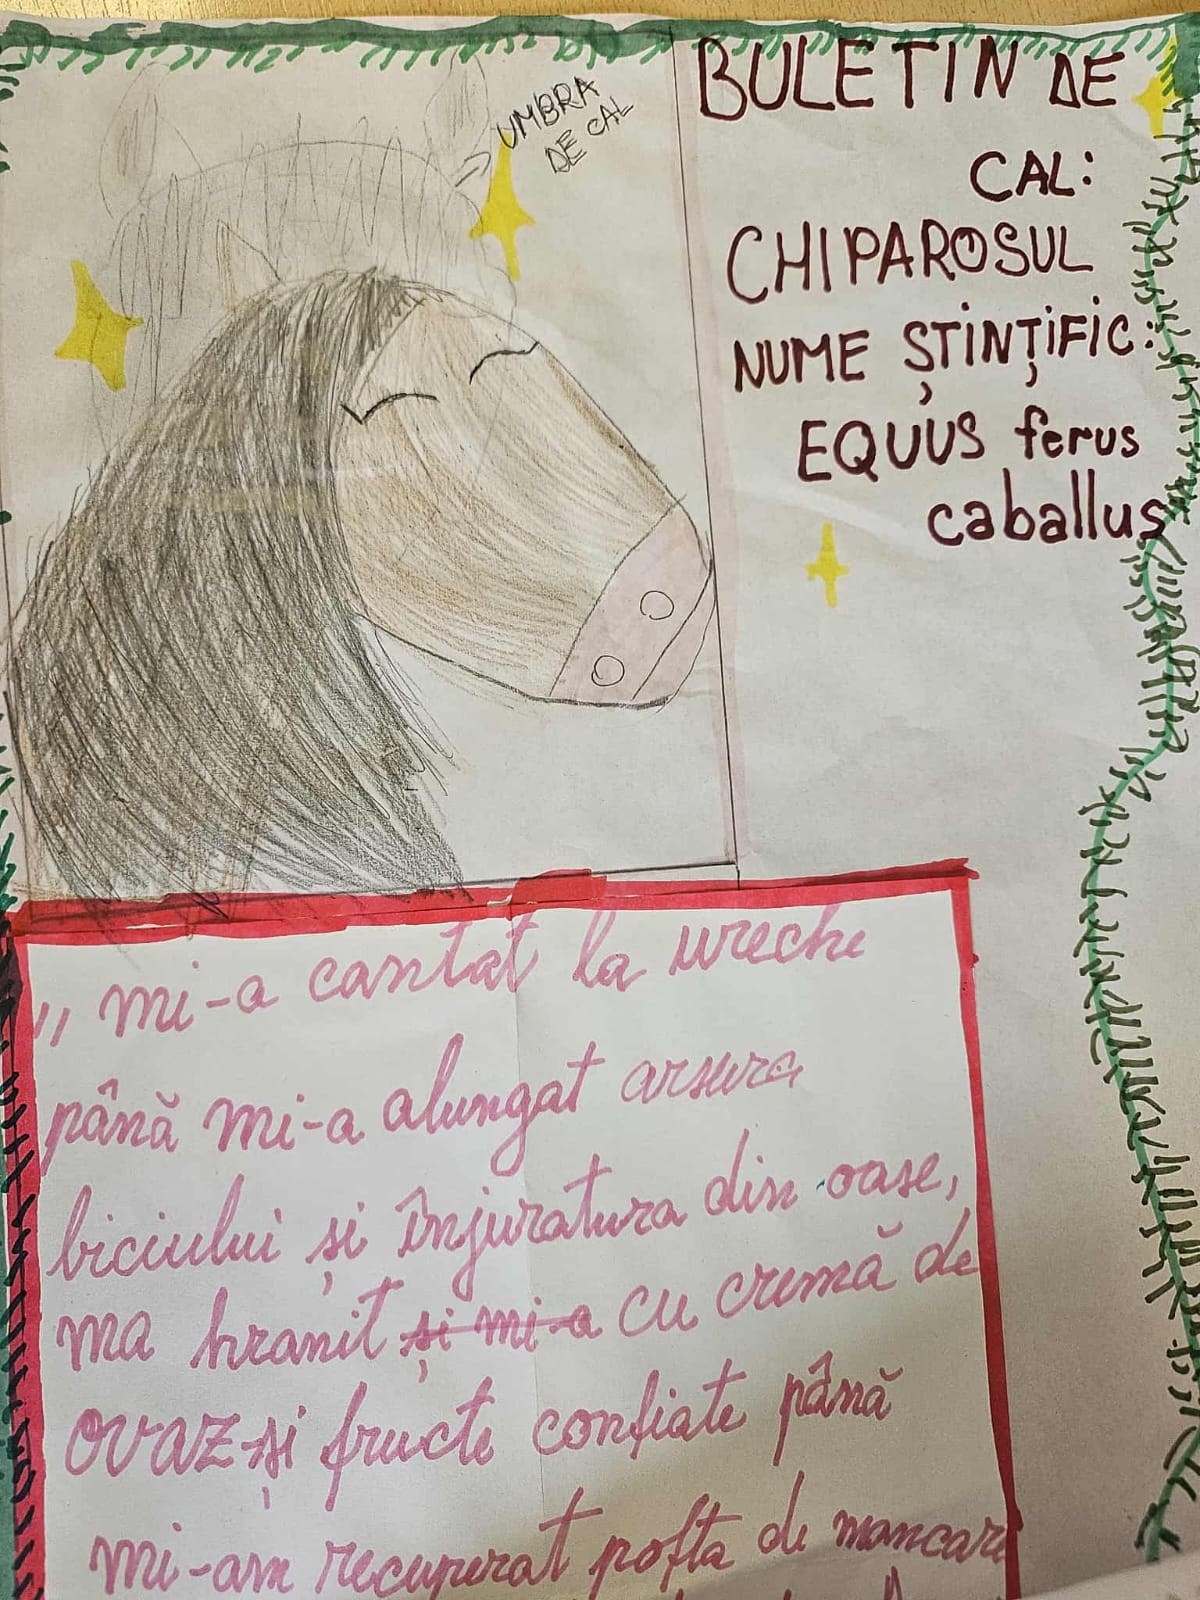 UMBRA
DE CAL
BULETIN DE
CAL:
CHIPAROSUL
NUME ȘTINȚIFIC:
EQUUS ferus
caballus
„mi-a cantat la ureche
până mi-a alungat arsura
biciului și înjuratura din oase,
ma hranit și mi-a cu cremă de
ovaz și fructe confiate până
mi-am recuperat pofta de mancare